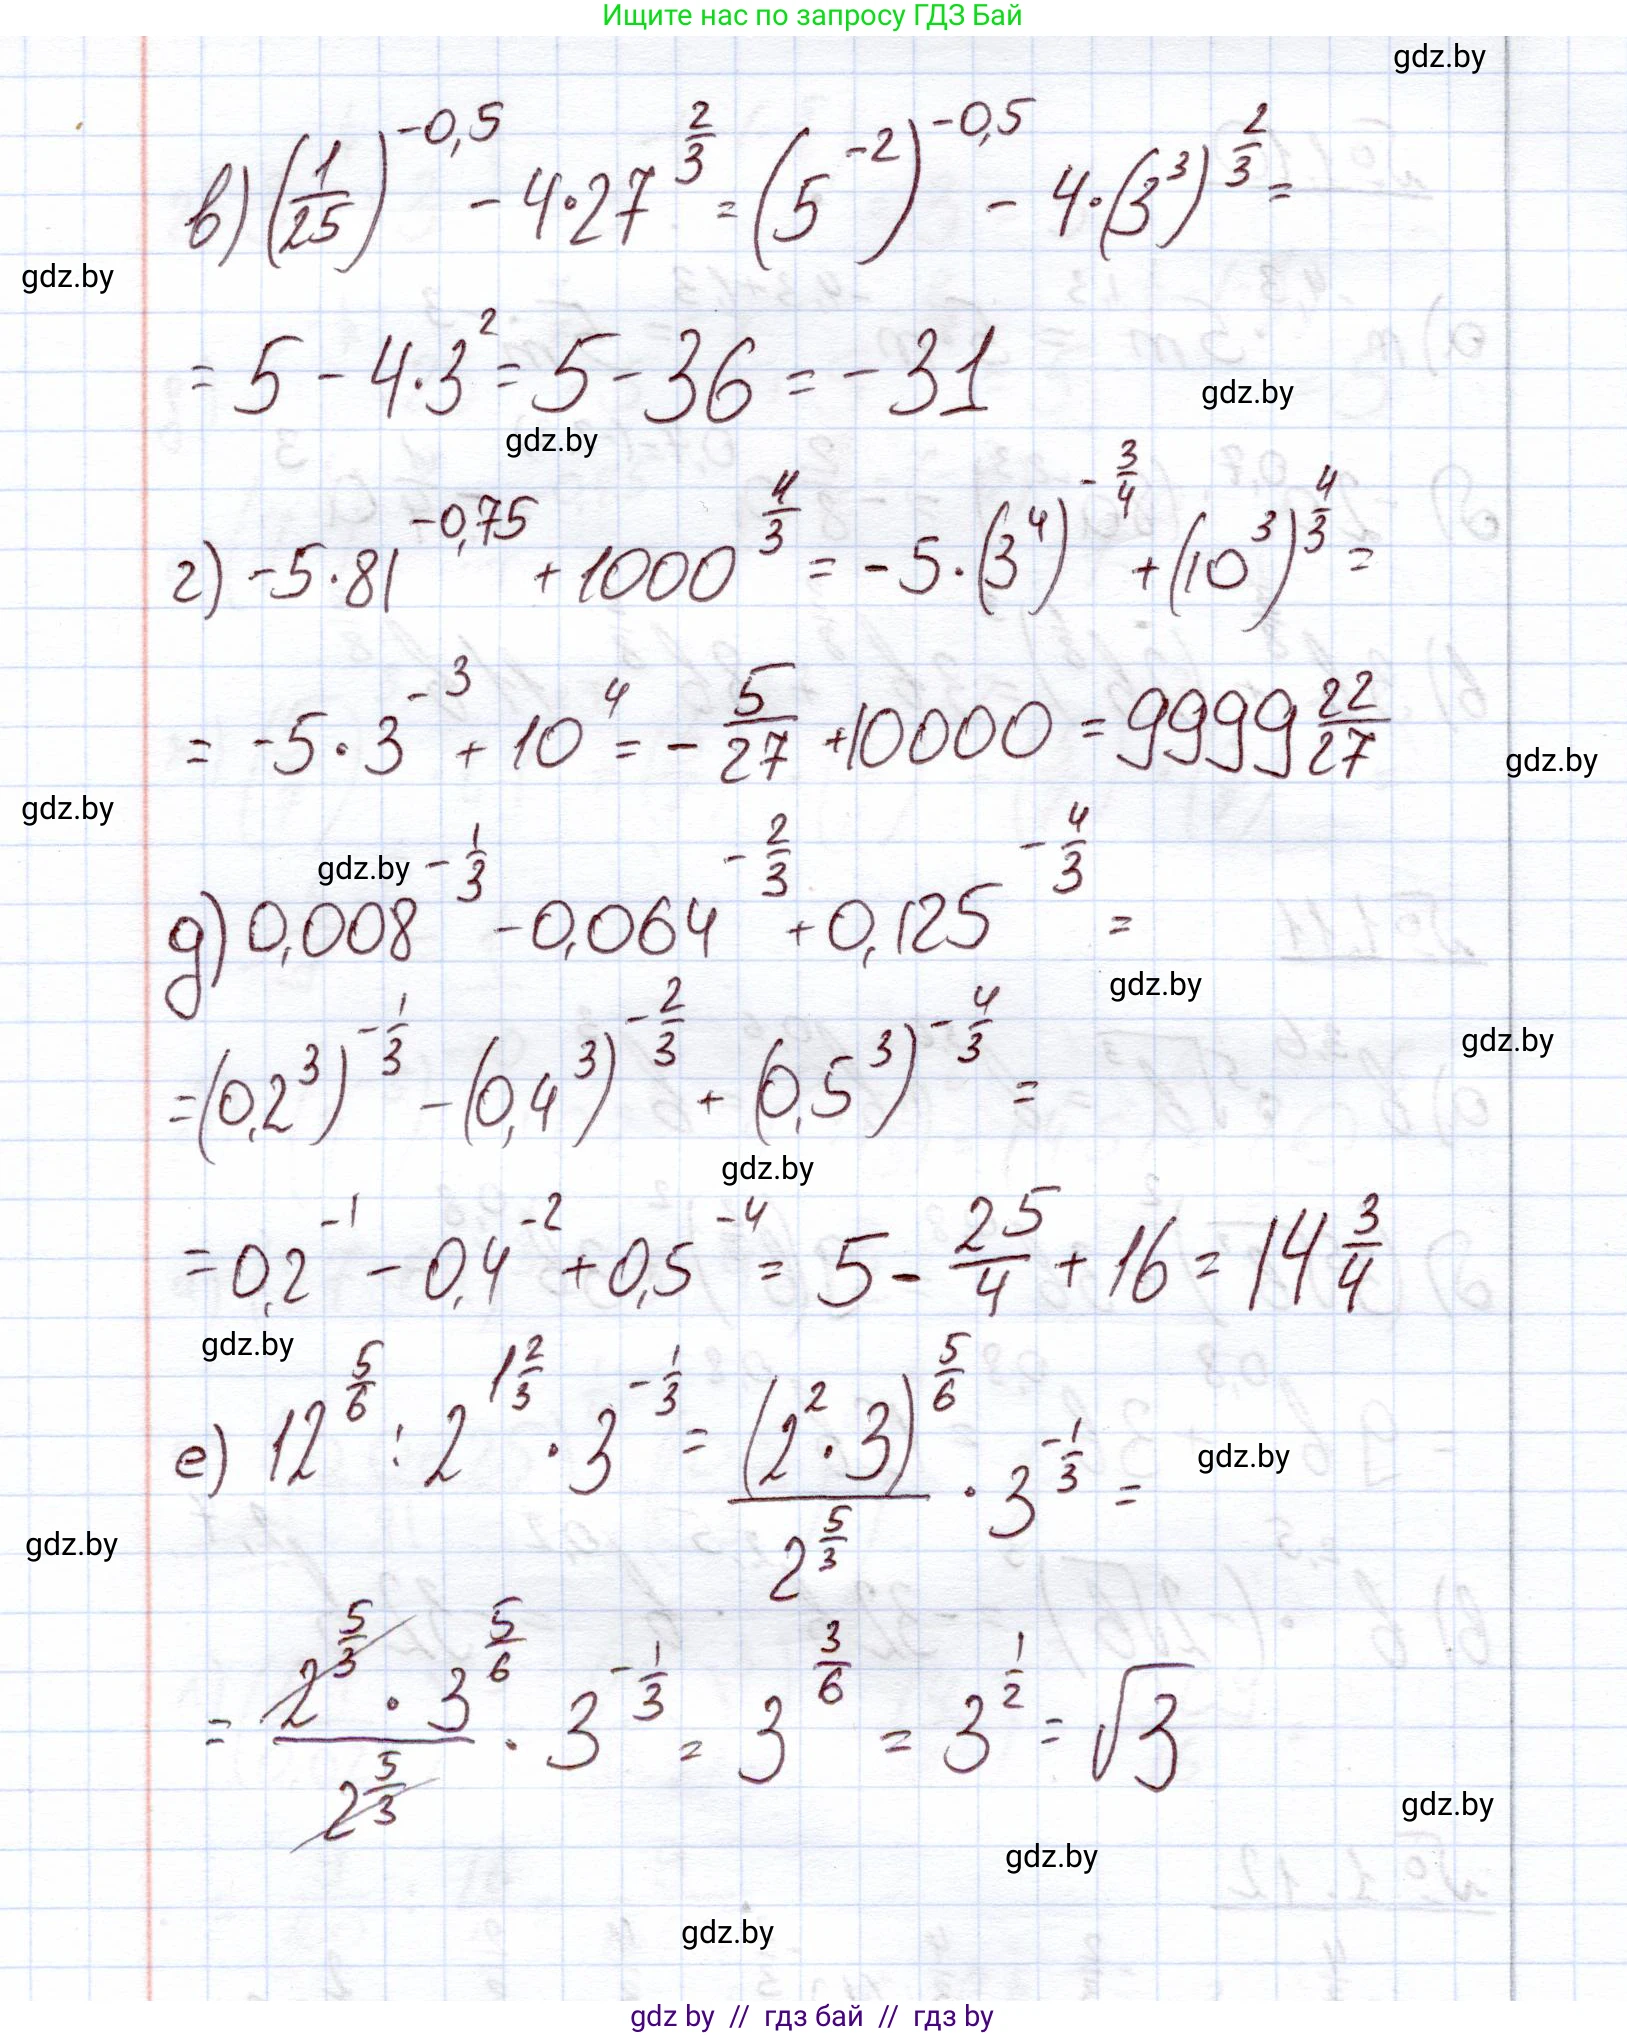 Ищите нас по запросу ГДЗ Бай
gdz.by
в) (1/25)^(-0,5) - 4·27^(2/3) = (5^(-2))^(-0,5) - 4·(3^3)^(2/3) =
gdz.by
= 5 - 4·3^2 = 5 - 36 = -31
gdz.by
gdz.by
г) -5·81^(-0,75) + 1000^(4/3) = -5·(3^4)^(-3/4) + (10^3)^(4/3) =
= -5·3^(-3) + 10^4 = -5/27 + 10000 = 9999 22/27
gdz.by
gdz.by
gdz.by
д) 0,008^(-1/3) - 0,064^(-2/3) + 0,125^(-4/3) =
gdz.by
gdz.by
= (0,2^3)^(-1/3) - (0,4^3)^(-2/3) + (0,5^3)^(-4/3) =
gdz.by
= 0,2^(-1) - 0,4^(-2) + 0,5^(-4) = 5 - 25/4 + 16 = 14 3/4
gdz.by
е) 12^(5/6) : 2^(1 2/3) · 3^(-1/3) = (2^2·3)^(5/6) / 2^(5/3) · 3^(-1/3) =
gdz.by
gdz.by
= 2^(5/3) · 3^(5/6) / 2^(5/3) · 3^(-1/3) = 3^(3/6) = 3^(1/2) = √3
gdz.by
gdz.by
gdz.by
gdz by // гдз бай // гдз by